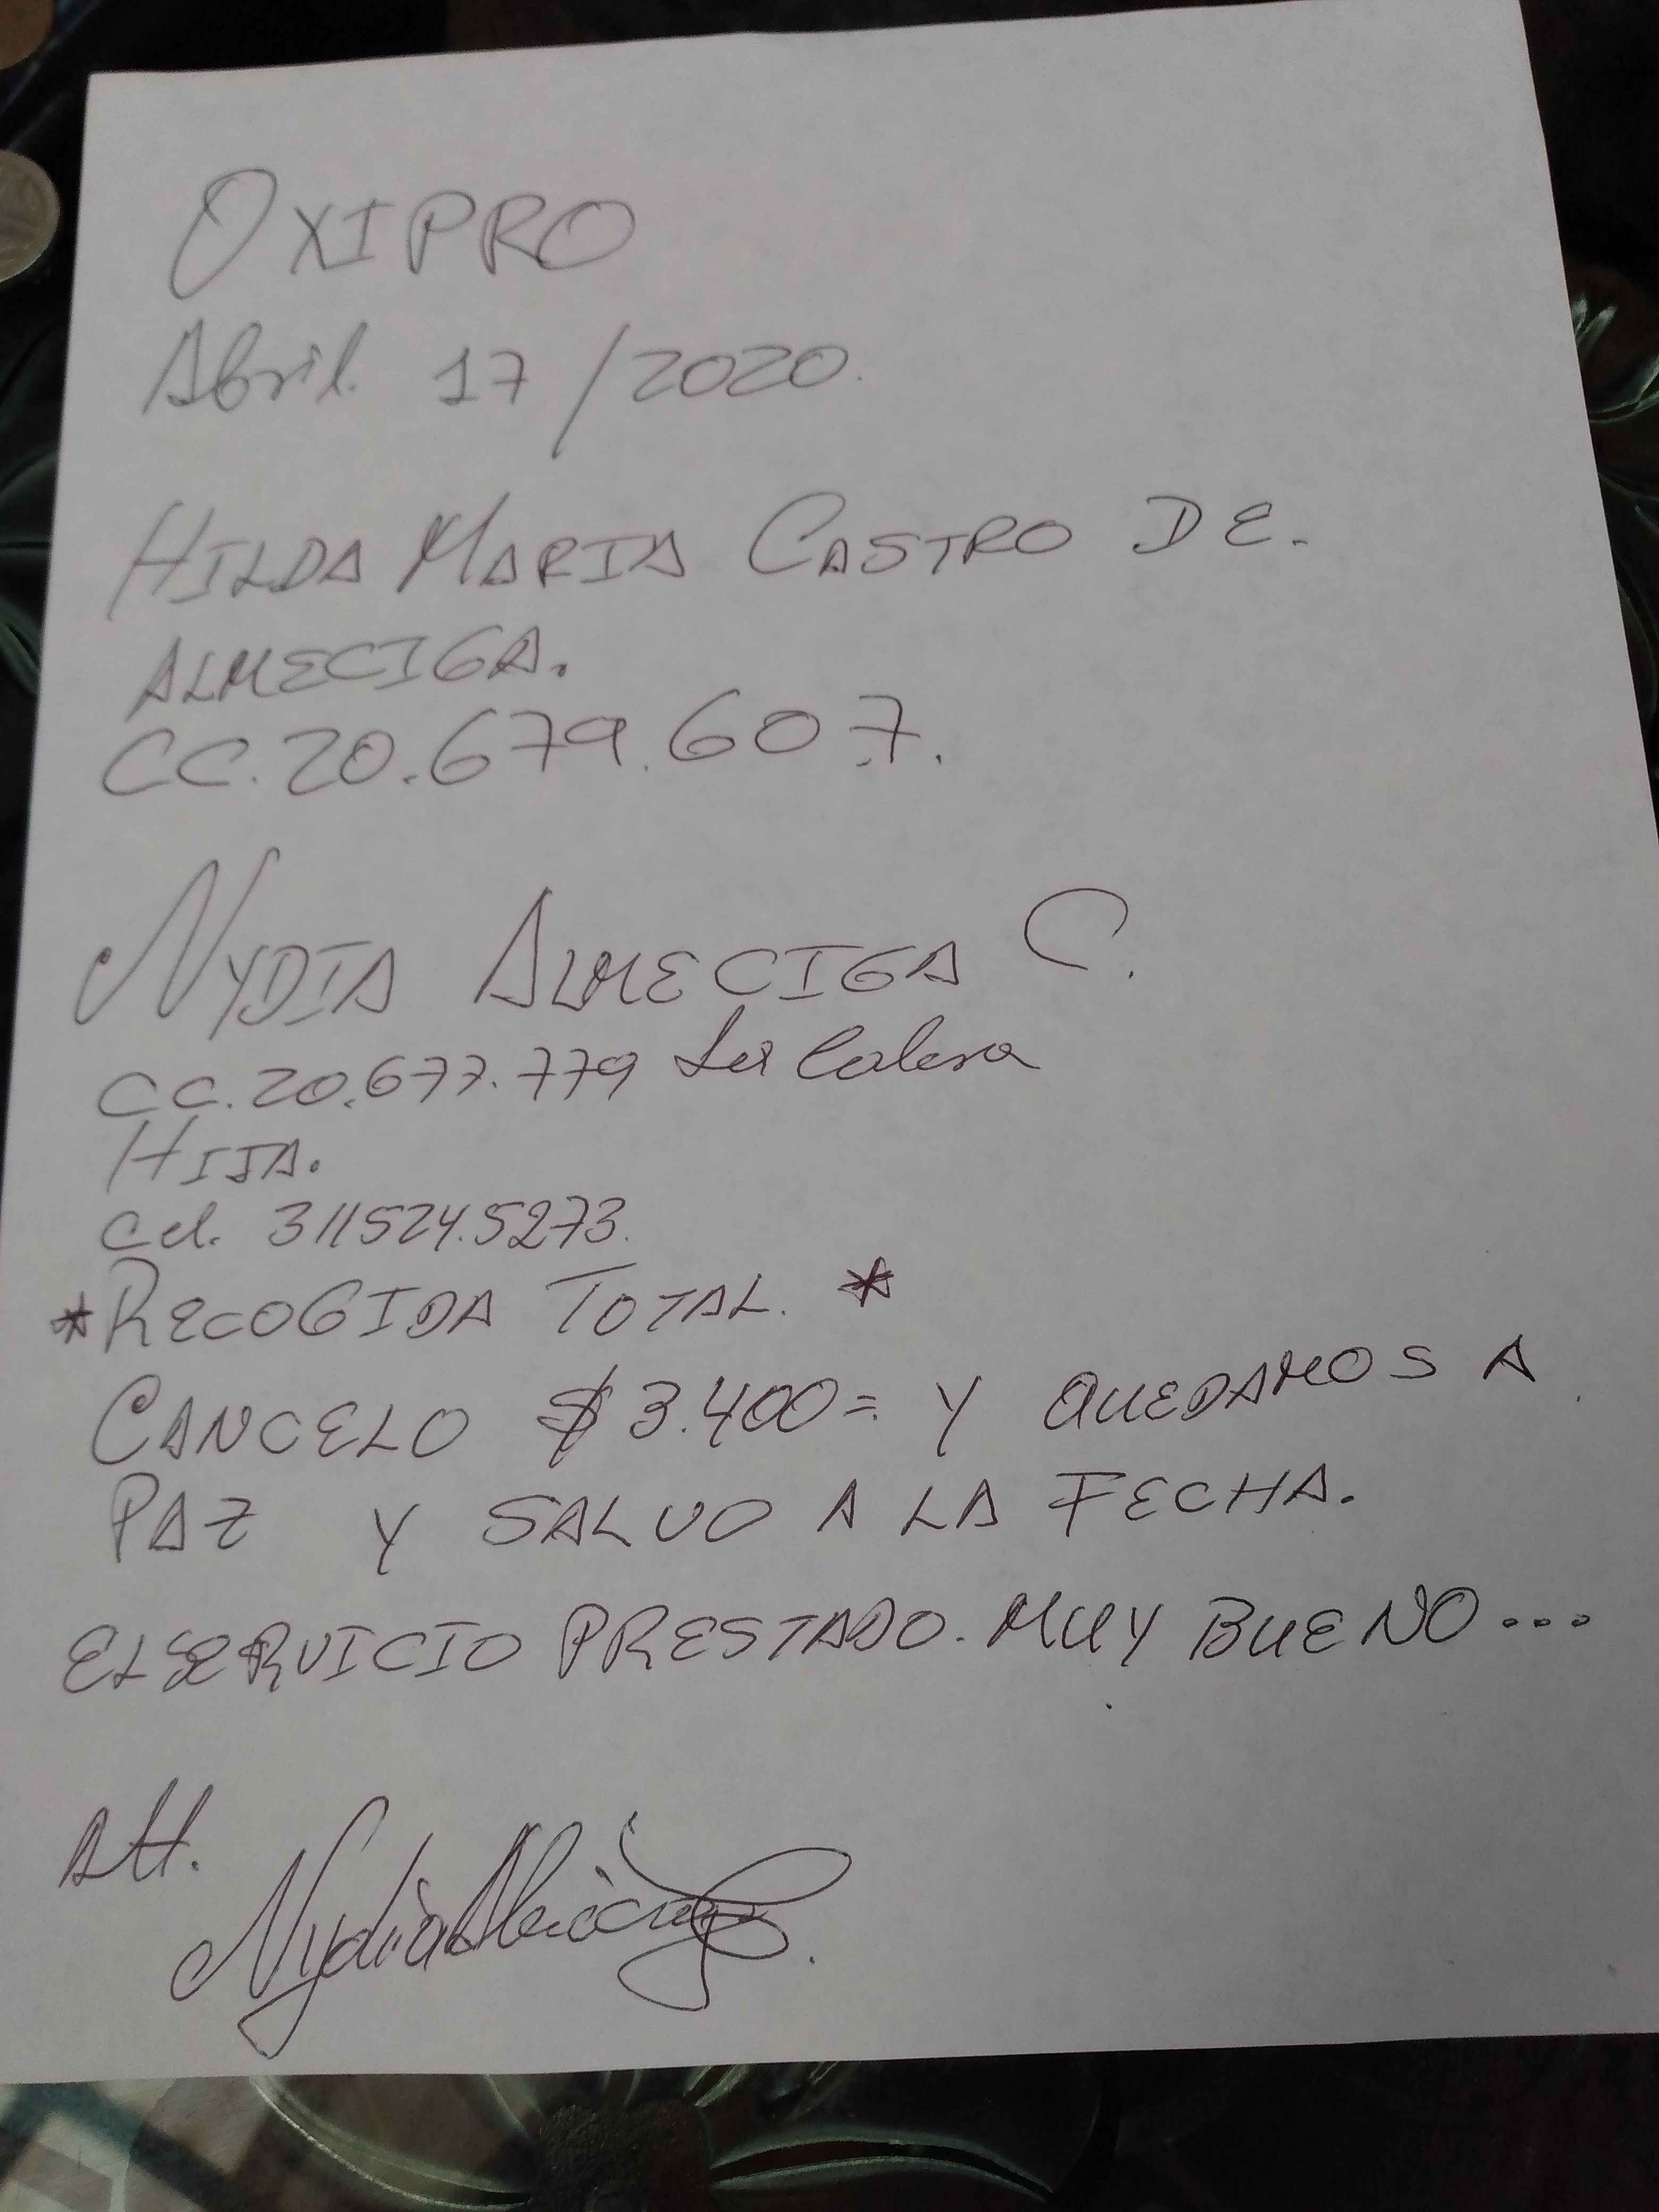 OXIPRO
Abril. 17/2020.
HILDA MARIA CASTRO DE.
ALMECIGA.
CC.20.679.607.
NYDIA ALMECIGA C.
CC.20.677.779 La Calera
HIJA.
Cel. 311524.5273.
*RECOGIDA TOTAL. *
CANCELO $3.400= Y QUEDAMOS A
PAZ Y SALVO A LA FECHA.
EL SERVICIO PRESTADO. MUY BUENO...
Att.